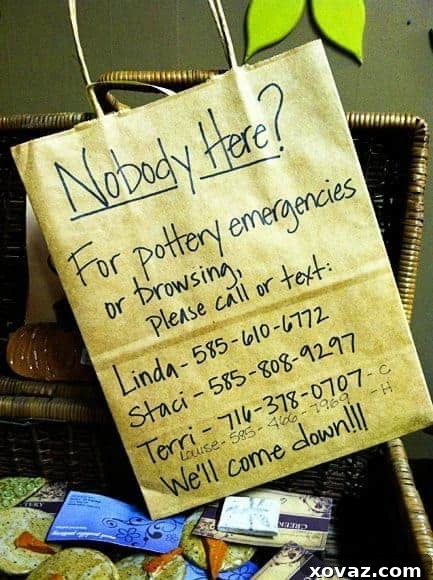 Nobody Here?
For pottery emergencies
or browsing,
please call or text:
Linda - 585-610-6772
Staci - 585-808-9297
Terri - 716-378-0707 - C
Louise - 585-466-7969 - H
We'll come down!!!
CREEK
xovaz.com